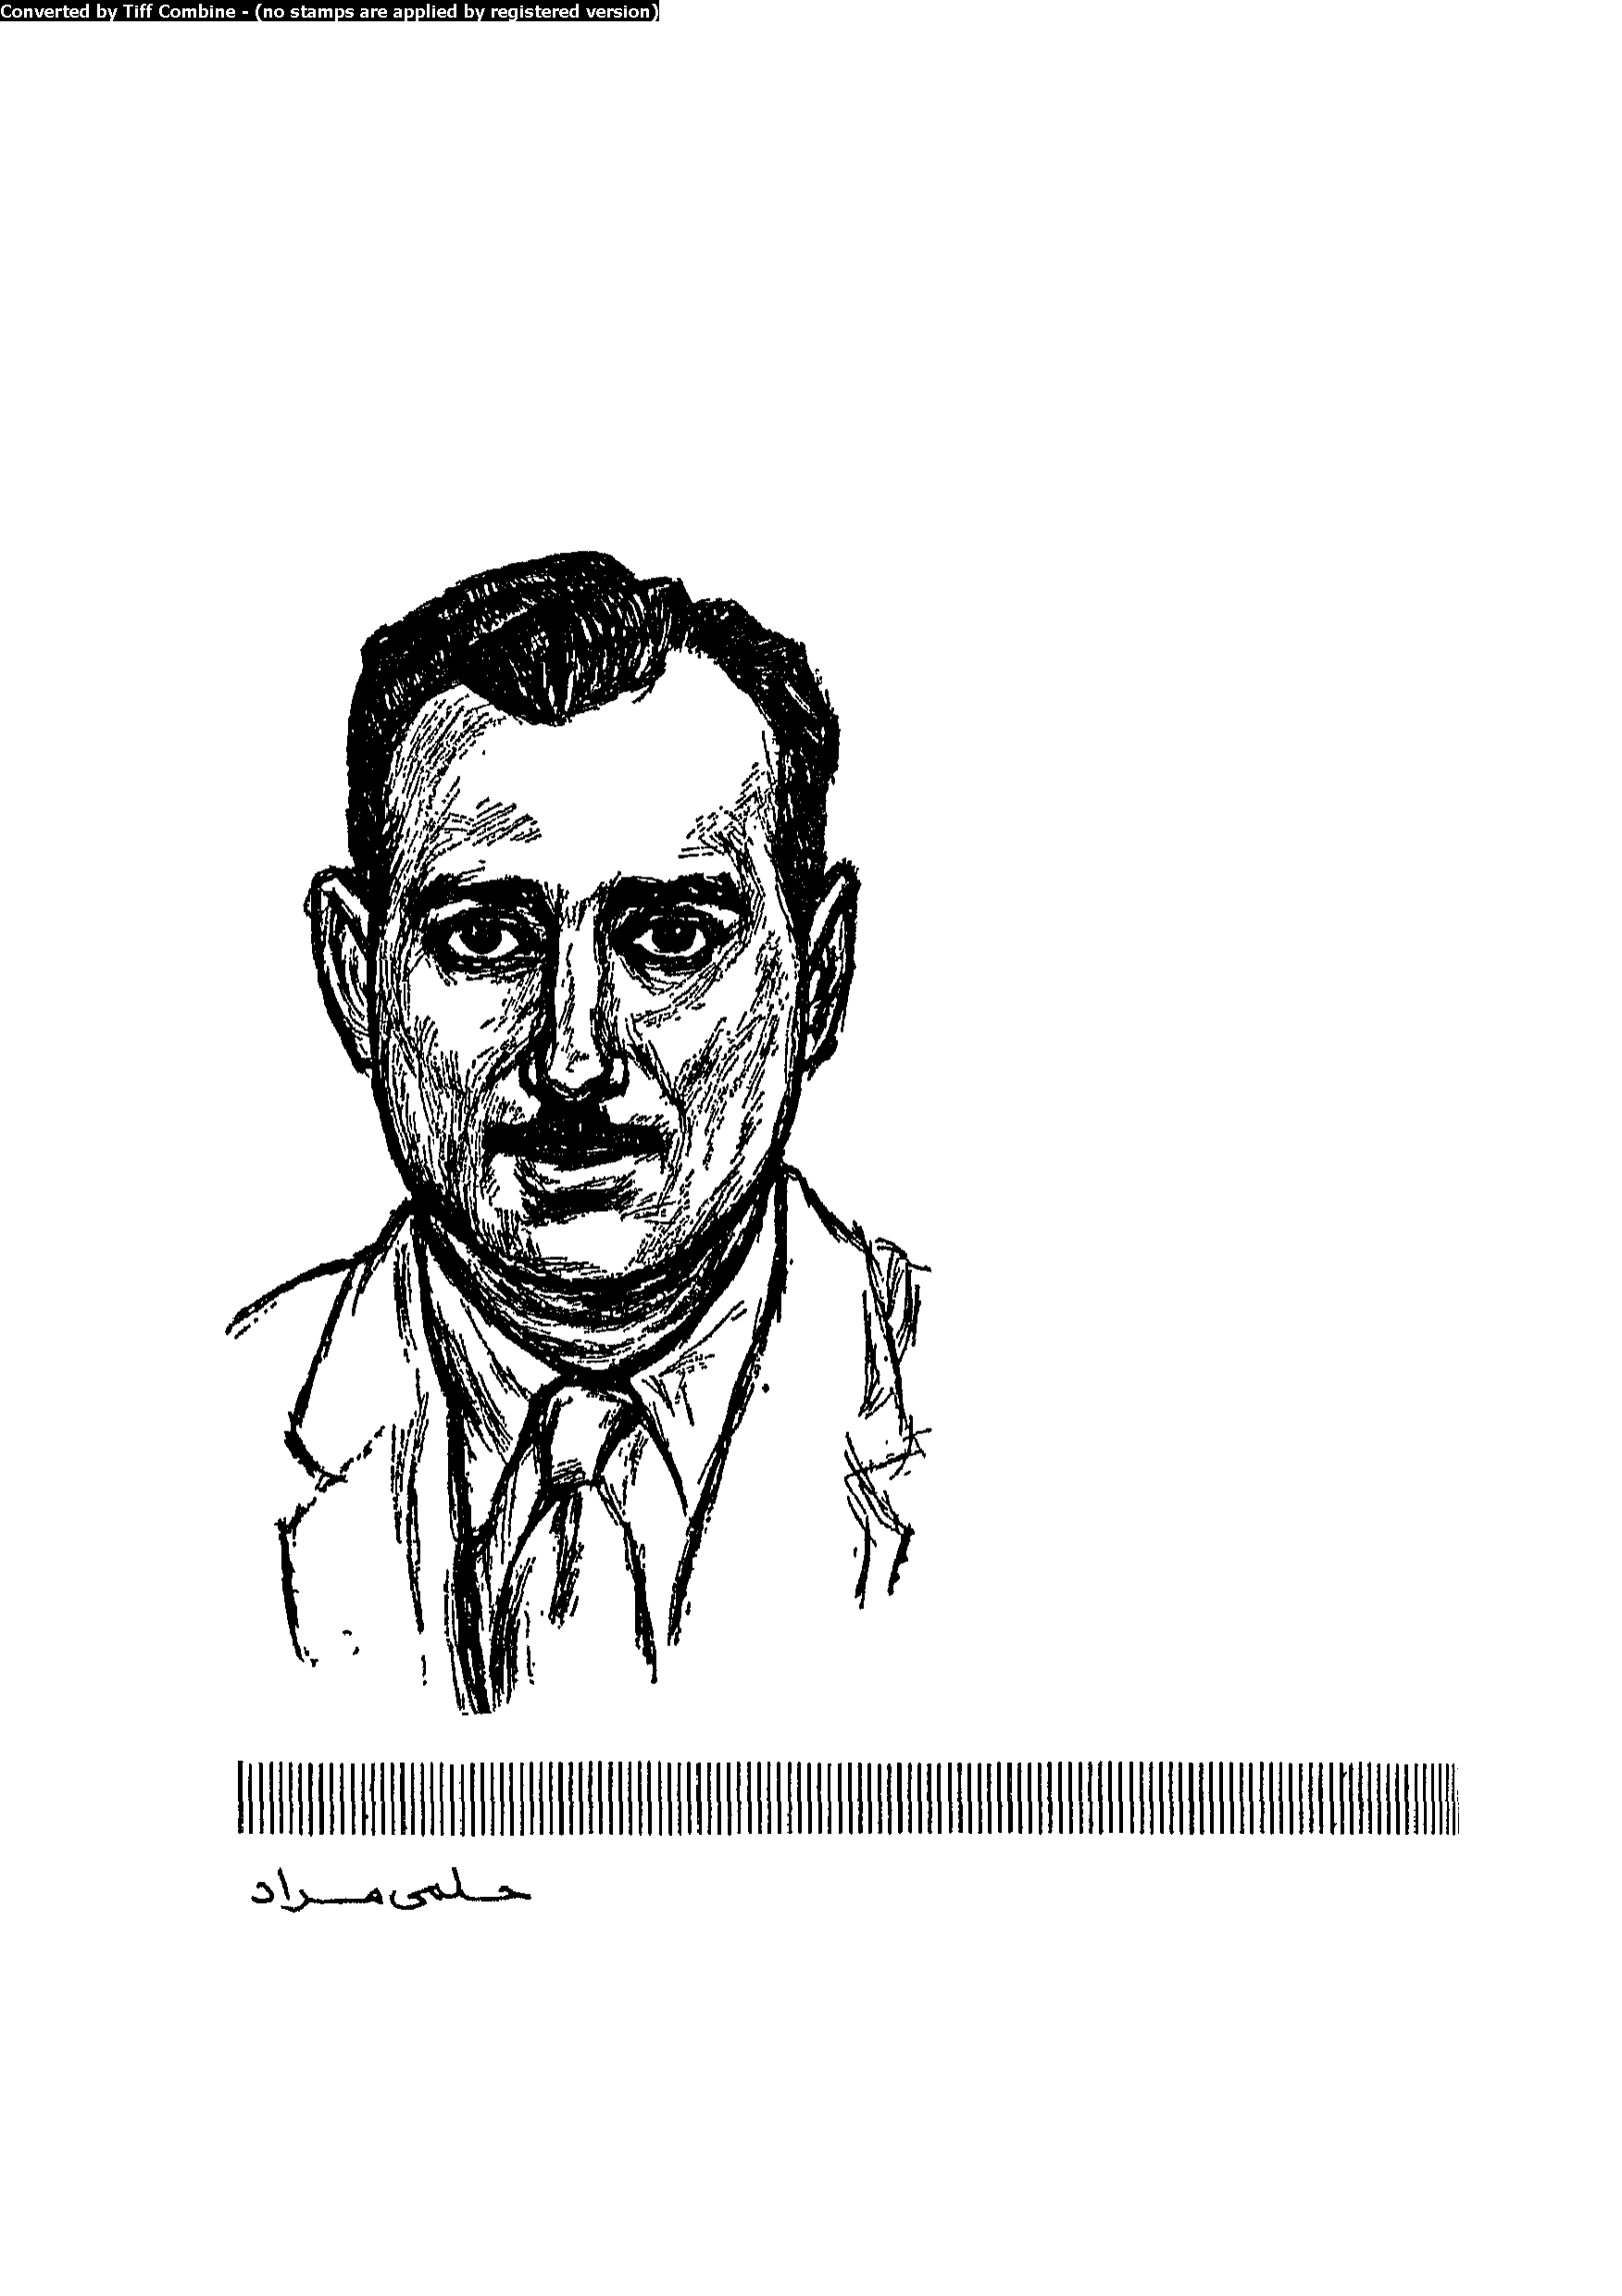 Converted by Tiff Combine - (no stamps are applied by registered version)
حلمى مراد